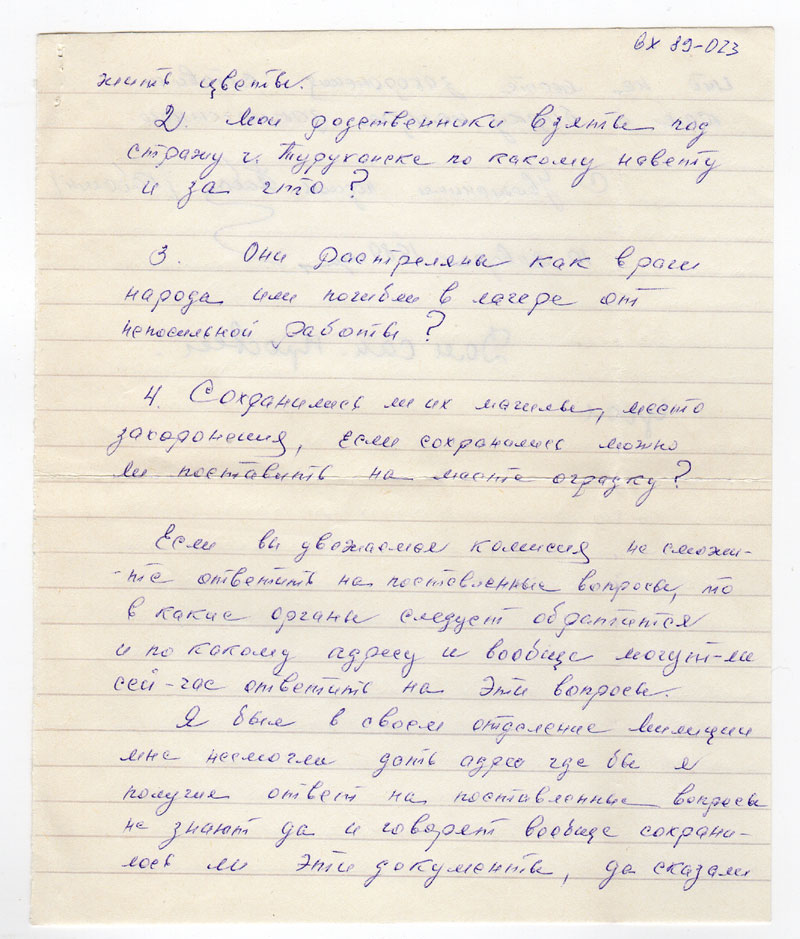 вх 89-023
жить цветы.
2) Мои родственники взяты под
стражу г. Туруханске по какому навету
и за что?
3. Они растреляны как враги
народа или погибли в лагере от
непосильной работы?
4. Сохранились ли их магилы, место
захоронения, если сохранились можно
ли поставить на месте оградку?
Если вы уважаемая комисия не сможи-
-те ответить на поставленные вопросы, то
в какие органы следует обратится
и по какому адресу и вообще могут-ли
сей-час ответить на эти вопросы.
Я был в своем отделение милиции
мне несмогли дать адрес где бы я
получил ответ на поставленные вопросы
не знают да и говорят вообще сохрани-
лось ли эти документы, да сказали